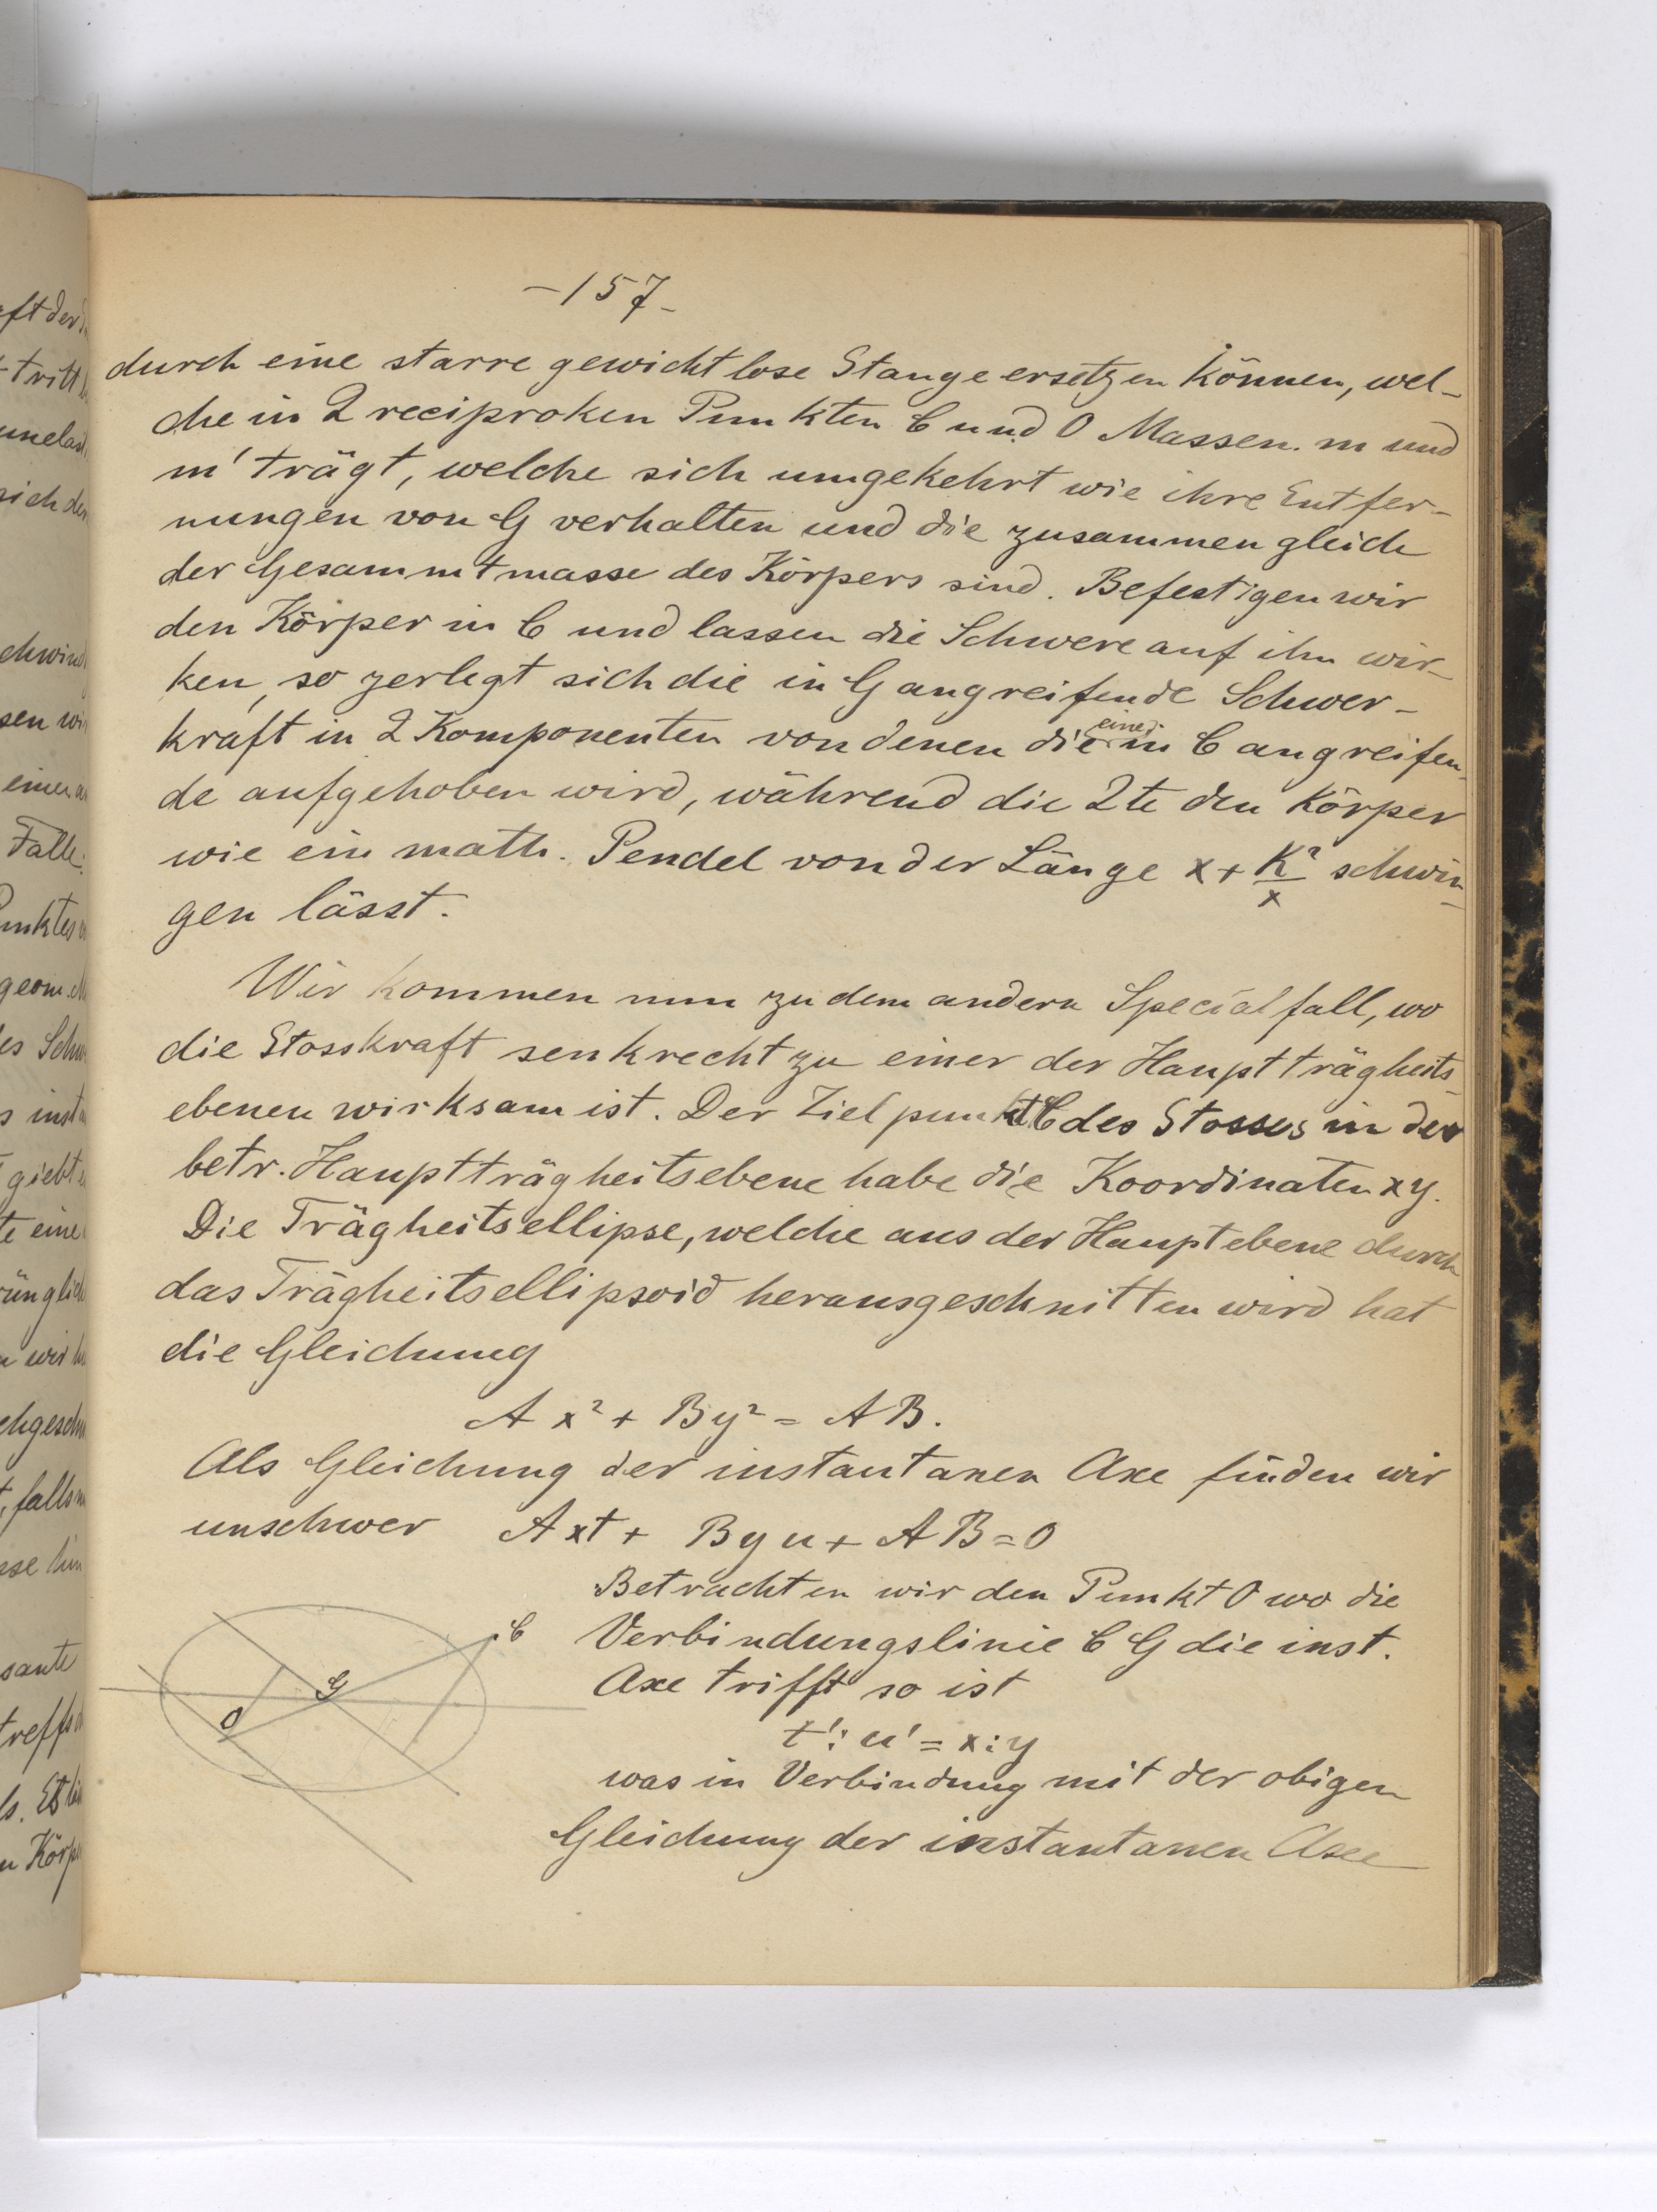 -157-
durch eine starre gewichtlose Stange ersetzen können, wel-
che in 2 reciproken Punkten C und O Massen m und
m' trägt, welche sich umgekehrt wie ihre Entfer-
nungen von G verhalten und die zusammen gleich
der Gesammtmasse des Körpers sind. Befestigen wir
den Körper in C und lassen die Schwere auf ihn wir-
ken, so zerlegt sich die in G angreifende Schwer-
kraft in 2 Komponenten von denen die eine in C angreifen-
de aufgehoben wird, während die 2te den Körper
wie ein math. Pendel von der Länge x + K²/x schwin-
gen lässt.
Wir kommen nun zu dem andern Specialfall, wo
die Stosskraft senkrecht zu einer der Hauptträgheits
ebenen wirksam ist. Der Zielpunkt C des Stosses in der
betr. Hauptträgheitsebene habe die Koordinaten x y.
Die Trägheitsellipse, welche aus der Hauptebene durch
das Trägheitsellipsoid herausgeschnitten wird hat
die Gleichung
A x² + B y² = A B.
Als Gleichung der instantanen Axe finden wir
unschwer A x t + B y u + A B = 0
Betrachten wir den Punkt O wo die
Verbindungslinie C G die inst.
Axe trifft so ist
t' : u' = x : y
was in Verbindung mit der obigen
Gleichung der instantanen Axe
C
G
O